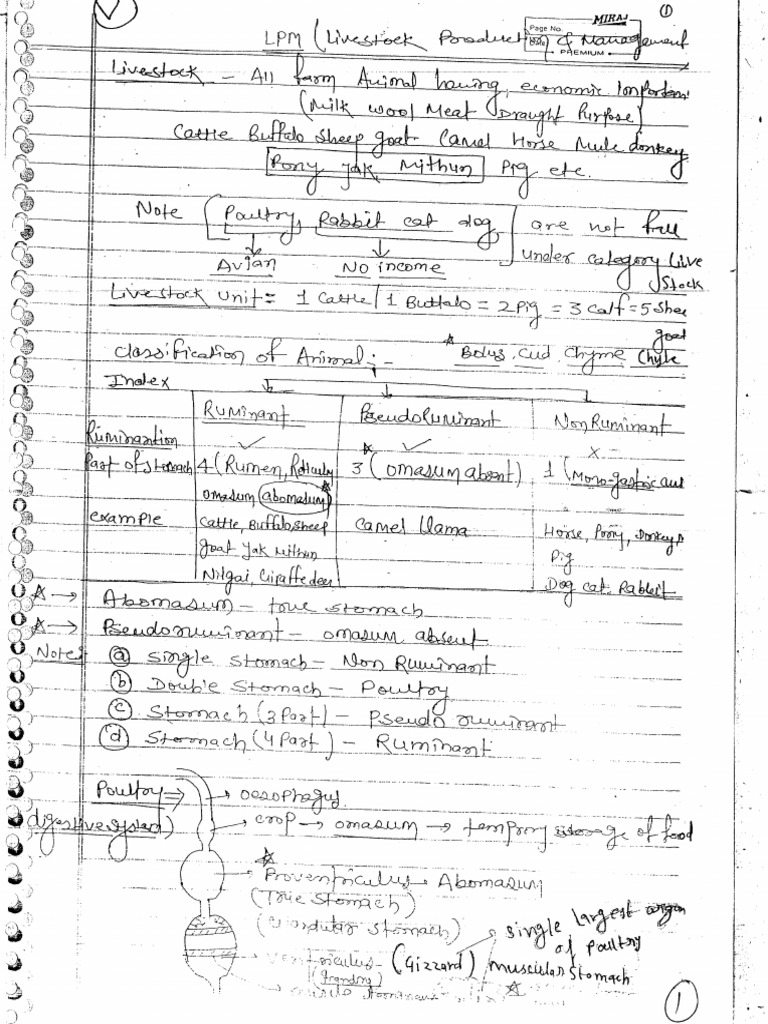 ①
MIRAJ
Page No.
Date
PREMIUM
LPM (Livestock Product & Management
Livestock – All farm Animal having economic
(Milk Wool Meat Draught Purpose)
Cattle Buffalo Sheep goat Camel Horse Mule donkey
Pony Yak Mithun Pig etc.
Note (Poultry, Rabbit cat dog) are not fall
under category Live
Stock
Avian No income
Livestock Unit = 1 Cattle / 1 Buffalo = 2 Pig = 3 Calf = 5 Shee
goat
Classification of Animal :- ☆ Bolus, Cud Chyme Chyle
Index
Ruminant PseudoRuminant Non Ruminant
✓ ✓ x
Part of stomach 4 (Rumen, omasum (abomasum) ☆ 3 (omasum absent) 1
example Cattle, Buffalo sheep Camel llama Horse, Pony, Donkey
goat Yak Mithun Pig
Nilgai, Giraffe deer Dog cat Rabbit
☆ → Abomasum – true stomach
☆ → Pseudoruminant – omasum absent
Note: ⓐ Single Stomach – Non Ruminant
ⓑ Double Stomach – Poultry
ⓒ Stomach (3 Part) – Pseudo ruminant
ⓓ Stomach (4 Part) – Ruminant
Poultry → → oesophagus
digestive → crop → omasum → storage of food
☆
Proventriculus – Abomasum
(True Stomach)
Stomach) single largest organ
of Poultry
ventriculus – (Gizzard) muscular Stomach
☆
①